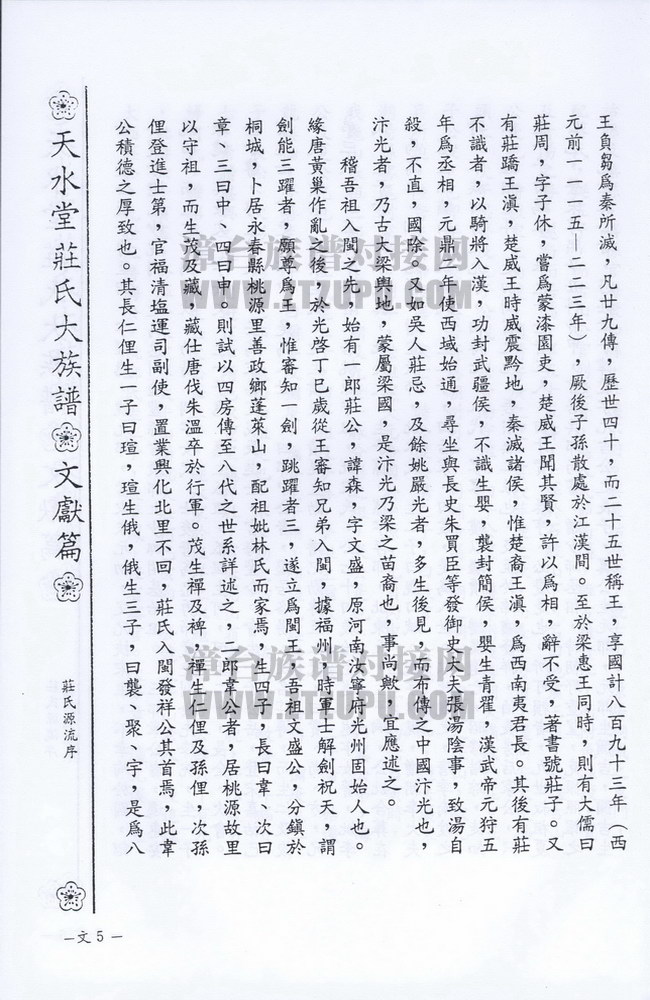 王負芻爲秦所滅，凡廿九傳，歷世四十，而二十五世稱王，享國計八百九十三年（西
元前一一一五—二二三年），厥後子孫散處於江漢間。至於梁惠王同時，則有大儒曰
莊周，字子休，嘗爲蒙漆園吏，楚威王聞其賢，許以爲相，辭不受，著書號莊子。又
有莊蹻王滇，楚威王時威震黔地，秦滅諸侯，惟楚裔王滇，爲西南夷君長。其後有莊
不識者，以騎將入漢，功封武疆侯，不識生嬰，襲封簡侯，嬰生青翟，漢武帝元狩五
年爲丞相，元鼎二年使西域始通，尋坐與長史朱買臣等發御史大夫張湯陰事，致湯自
殺，不直，國除。又如吳人莊忌，及餘姚嚴光者，多生後見，而布傳之中國汴光也，
汴光者，乃古大梁輿地，蒙屬梁國，是汴光乃梁之苗裔也，事尚歟，宜應述之。
稽吾祖入閩之先，始有一郎莊公，諱森，字文盛，原河南汝寧府光州固始人也。
緣唐黃巢作亂之後，於光啓丁巳歲從王審知兄弟入閩，據福州，時軍士解劍祝天，謂
劍能三躍者，願尊爲王，惟審知一劍，跳躍者三，遂立爲閩王，吾祖文盛公，分鎮於
桐城，卜居永春縣桃源里善政鄉蓬萊山，配祖妣林氏而家焉，生四子，長曰韋、次曰
章、三曰中、四曰申，則試以四房傳至八代之世系詳述之，二郎韋公者，居桃源故里
以守祖，而生茂及藏，藏仕唐伐朱溫卒於行軍。茂生禪及裨，禪生仁俚及孫俚，次孫
俚登進士第，官福清塩運司副使，置業興化北里不回，莊氏入閩發祥公其首焉，此韋
公積德之厚致也。其長仁俚生一子曰瑄，瑄生俄，俄生三子，曰襲、聚、字，是爲八
天水堂莊氏大族譜
文獻篇
莊氏源流序
—文5—
漳台族谱对接网
WWW.ZTZUPU.COM
漳台族谱对接网
WWW.ZTZUPU.COM